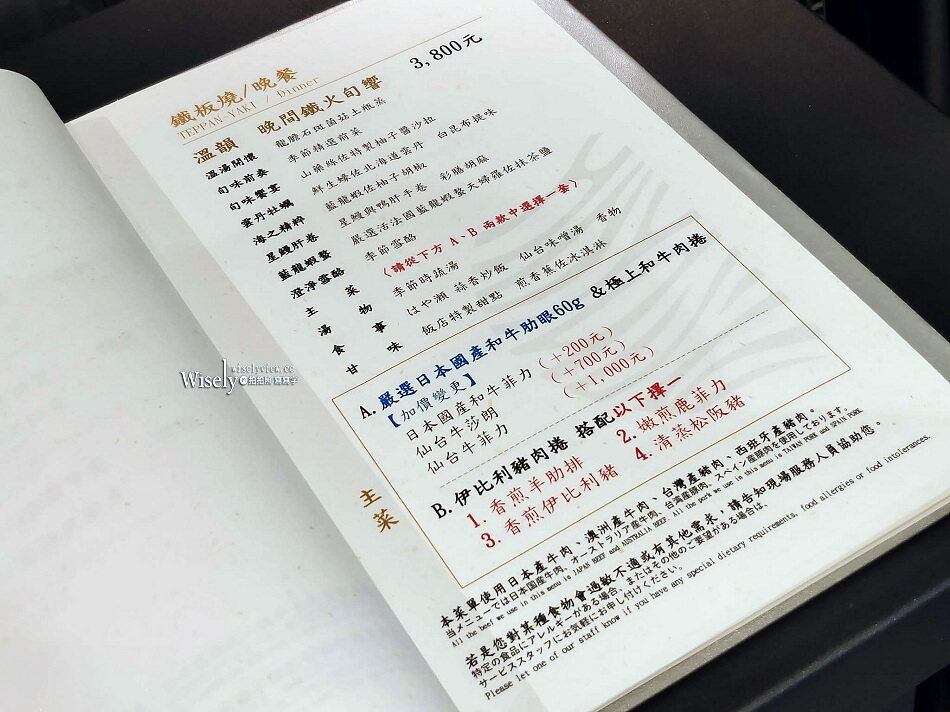 鐵板燒/晚餐
TEPPAN-YAKI / Dinner
溫韻 晚間鐵火旬響 3,800元
溫湯開懷 龍膽石斑菌菇土瓶蒸
旬味前奏 季節精選前菜
旬味饗宴 山藥絲佐特製柚子醬沙拉
雲丹牡蠣 鮮生蠔佐北海道雲丹 白昆布提味
海之精粹 藍龍蝦佐柚子胡椒
星鰻肝卷 星鰻與鴨肝手卷 彩聯胡麻
藍龍蝦螯 嚴選活法國藍龍蝦螯天婦羅佐抹茶鹽
澄淨雪酪 季節雪酪
主菜 〈請從下方 A、B 兩款中選擇一套〉
湯物 季節時蔬湯
食事 はや瀬 蒜香炒飯 仙台味噌湯 香物
甘味 飯店特製甜點 煎香蕉佐冰淇淋
主菜
A. 嚴選日本國產和牛肋眼60g &極上和牛肉捲
【加價變更】
日本國產和牛菲力 (+200元)
仙台牛莎朗 (+700元)
仙台牛菲力 (+1,000元)
B. 伊比利豬肉捲 搭配以下擇一
1. 香煎羊肋排 2. 嫩煎鹿菲力
3. 香煎伊比利豬 4. 清蒸松阪豬
本菜單使用日本產牛肉、澳洲產牛肉、台灣產豬肉、西班牙產豬肉。
当メニューでは日本国産牛肉、オーストラリア産牛肉、台湾産豚肉、スペイン産豚肉を使用しております。
All the beef we use in this menu is JAPAN BEEF and AUSTRALIA BEEF. All the pork we use in this menu is TAIWAN PORK and SPAIN PORK.
若是您對某種食物會過敏不適或有其他需求，請告知現場服務人員協助您。
特定の食品にアレルギーがある場合、またはその他のご要望がある場合は、
サービススタッフにお気軽にお申し付けください。
Please let one of our staff know if you have any special dietary requirements, food allergies or food intolerances.
wiselyview.cc
Wisely 拍拍照 寫寫字